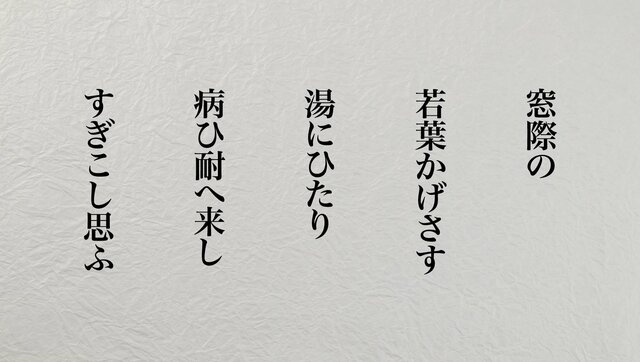 窓際の
若葉かげさす
湯にひたり
病ひ耐へ来し
すぎこし思ふ